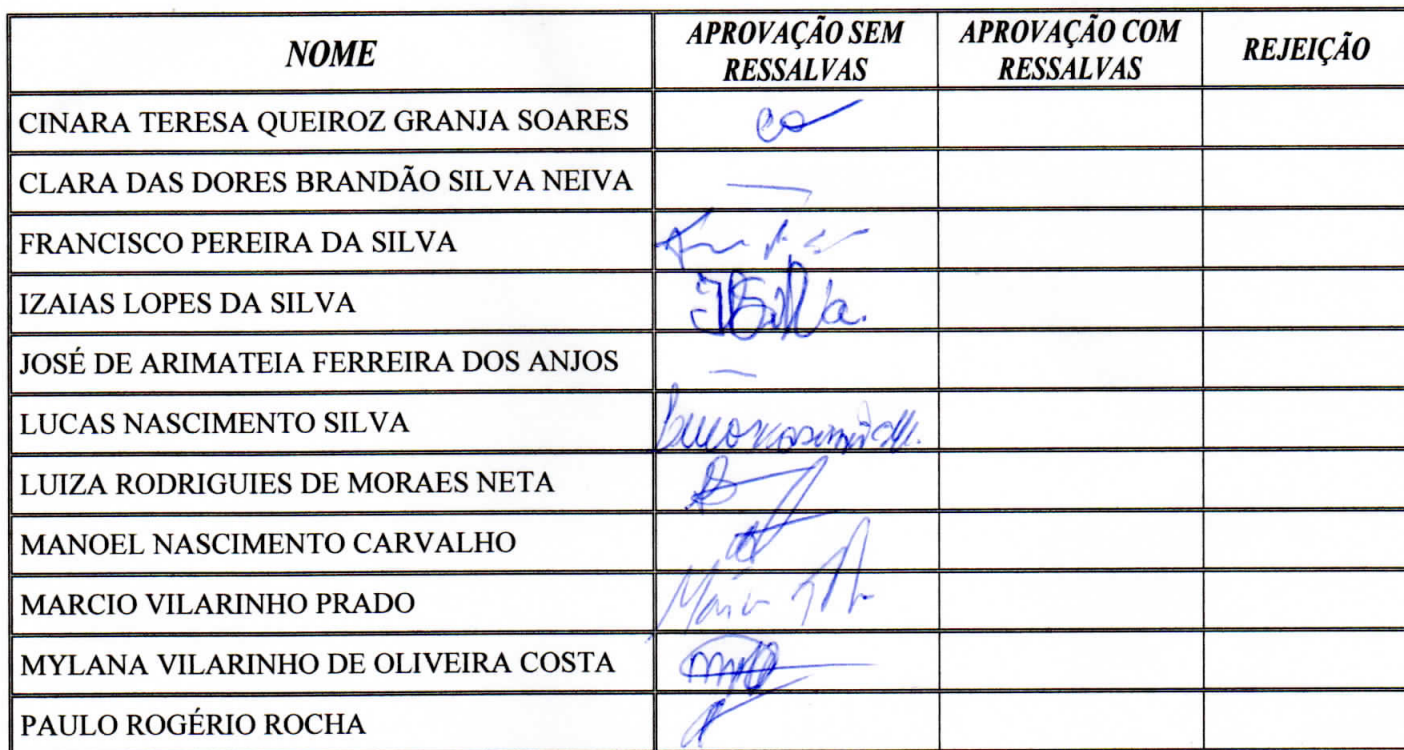 NOME APROVAÇÃO SEM RESSALVAS APROVAÇÃO COM RESSALVAS REJEIÇÃO
CINARA TERESA QUEIROZ GRANJA SOARES
CLARA DAS DORES BRANDÃO SILVA NEIVA
FRANCISCO PEREIRA DA SILVA
IZAIAS LOPES DA SILVA
JOSÉ DE ARIMATEIA FERREIRA DOS ANJOS
LUCAS NASCIMENTO SILVA
LUIZA RODRIGUIES DE MORAES NETA
MANOEL NASCIMENTO CARVALHO
MARCIO VILARINHO PRADO
MYLANA VILARINHO DE OLIVEIRA COSTA
PAULO ROGÉRIO ROCHA